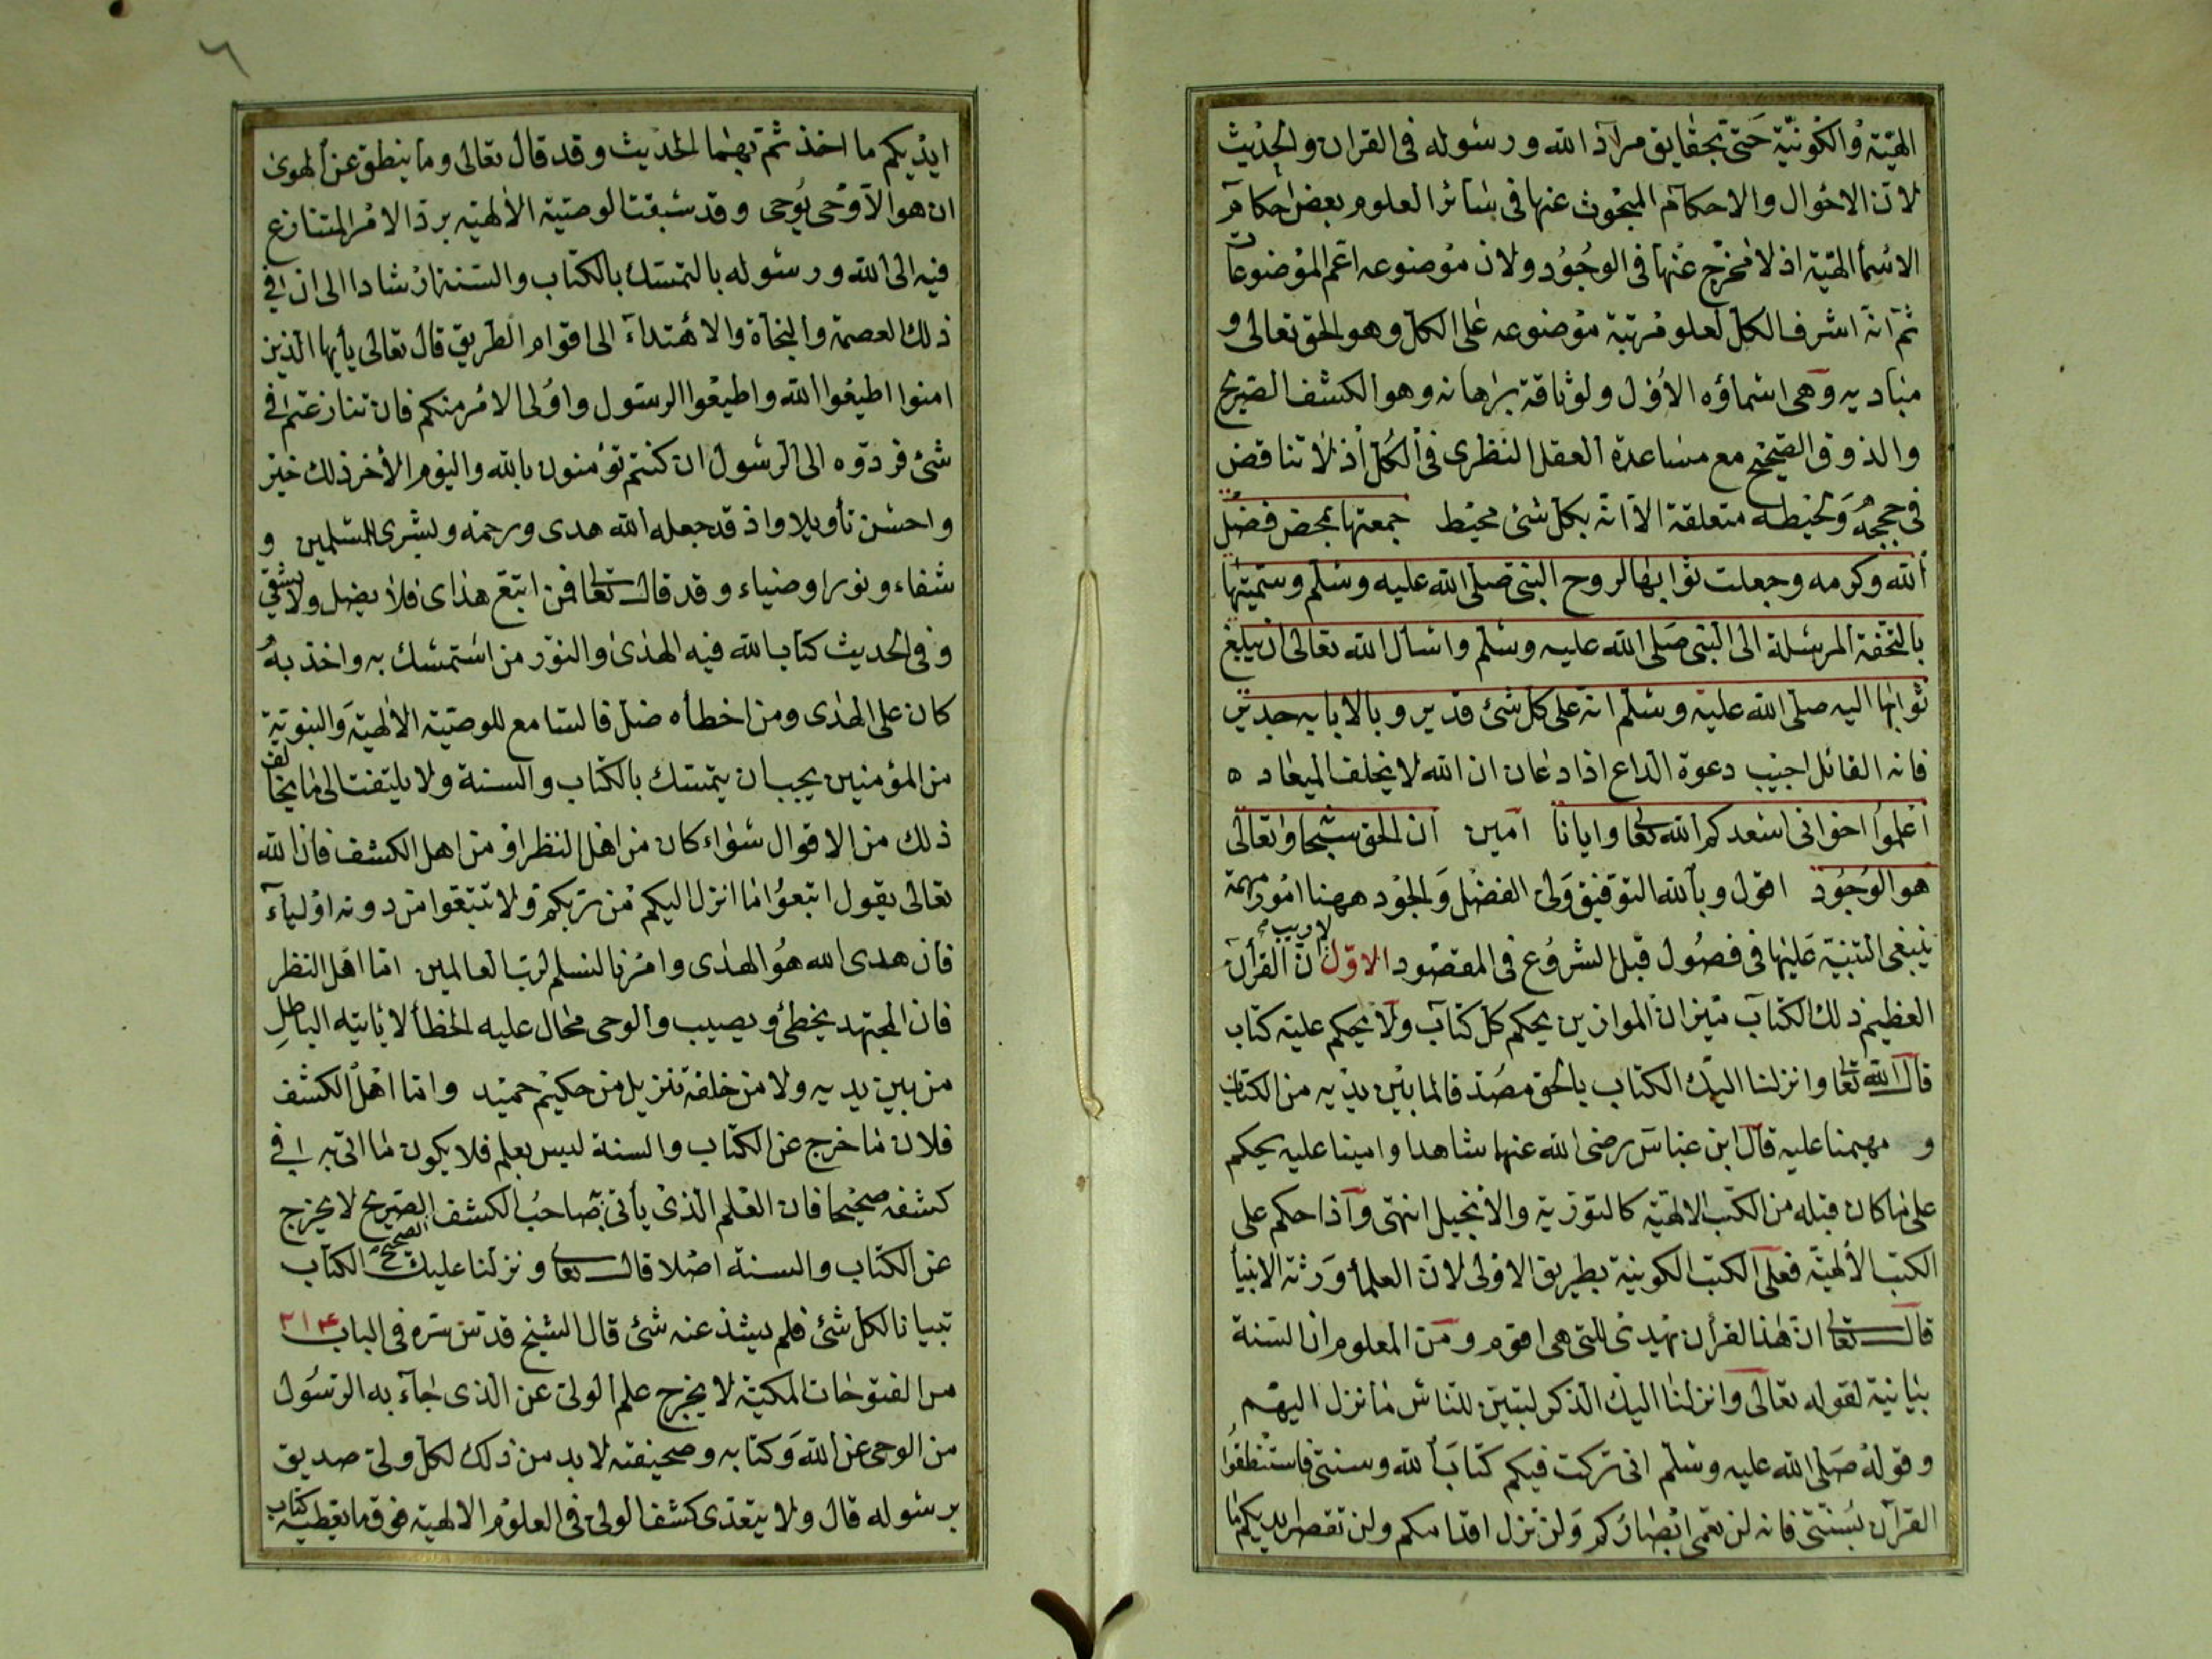 الهيّة والكونيّة حتى بحقايق مراد الله ورسوله فى القران والحديث
لان الاحوال والاحكام المبحوث عنها فى سائر العلوم بعض احكام
الاسما الهيّة اذ لا مخرج عنها فى الوجود ولان موضوعه اعم الموضوعات
ثم انه اشرف الكل لعلو مرتبة موضوعه على الكل وهو الحق تعالى و
مباديه وهى اسماؤه الاول ولوثاقة برهانه وهو الكشف الصريح
والذوق الصحيح مع مساعدة العقل النظرى فى الكل اذ لا تناقض
فى حججه متعلقة الا انه بكل شئ محيط جمعتها بمحض فضل
الله وكرمه وجعلت ثوابها لروح النبى صلى الله عليه وسلم وسميتها
بالتحفة المرسلة الى النبى صلى الله عليه وسلم واسأل الله تعالى ان يبلغ
ثوابها اليه صلى الله عليه وسلم انه على كل شئ قدير وبالاجابه جدير
فانه القائل اجيب دعوة الداع اذا دعان ان الله لا يخلف الميعاد ه
اعلموا اخوانى اسعدكم الله تعا وايانا امين ان الحق سبحا وتعالى
هو الوجود اقول وبالله التوفيق ولى الفضل والجود ههنا امور مهمة
ينبغى التنبيه عليها فى فصول قبل الشروع فى المقصود الاوّل ان القرآن
لا ريب
العظيم ذلك الكتاب ميزان الموازين يحكم كل كتاب ولا يحكم عليه كتاب
قال الله تعا وانزلنا اليك الكتاب بالحق مصدقا لما بين يديه من الكتاب
و مهيمنا عليه قال ابن عباس رضى الله عنهما شاهدا وامينا عليه يحكم
على ما كان قبله من الكتب الالهيّة كالتورية والانجيل انتهى واذا حكم على
الكتب الالهيّة فعلى الكتب الكونية بطريق الاولى لان العلماء ورثة الانبيا
قال تعا ان هذا القرأن يهدى للتى هى اقوم ومن المعلوم ان السنة
بيانية لقوله تعالى وانزلنا اليك الذكر لتبين للناس ما نزل اليهم
وقوله صلى الله عليه وسلم انى تركت فيكم كتاب الله وسنتى فاستنطقوا
القرآن بسنتى فانه لن تعمى ابصاركم ولن تزل اقدامكم ولن تقصر ايديكم ما
٦
ايديكم ما اخذتم بهما الحديث وقد قال تعالى وما ينطق عن الهوى
ان هو الا وحى يوحى وقد سبقت الوصيّة الالهيّه برد الامر المتنازع
فيه الى الله ورسوله بالتمسك بالكتاب والسنة ارشادا الى ان فى
ذلك العصمة والنجاة والاهتداء الى اقوام الطريق قال تعالى يأيها الذين
امنوا اطيعوا الله واطيعوا الرسول واولى الامر منكم فان تنازعتم فى
شئ فردوه الى الرسول ان كنتم تؤمنون بالله واليوم الأخر ذلك خير
واحسن تأويلا واذ قد جعله الله هدى ورحمة وبشرى للمسلمين و
شفاء ونورا وضياء وقد قال تعا فمن اتبع هداى فلا يضل ولا يشقى
وفى الحديث كتاب الله فيه الهدى والنور من استمسك به واخذ به
كان على الهدى ومن اخطأه ضل فالسامع للوصيّة الالهيّة والنبويّة
من المؤمنين يجب ان يتمسك بالكتاب والسنة ولا يلتفت الى ما يخالف
ذلك من الاقوال سواء كان من اهل النظر او من اهل الكشف فان الله
تعالى يقول اتبعوا ما انزل اليكم من ربكم ولا تتبعوا من دونه اولياء
فان هدى الله هو الهدى وامرنا لنسلم لرب العالمين اما اهل النظر
فان المجتهد يخطئ ويصيب والوحى محال عليه الخطأ لا يأتيه الباطل
من بين يديه ولا من خلفه تنزيل من حكيم حميد واما اهل الكشف
فلان ما خرج عن الكتاب والسنة ليس بعلم فلا يكون ما اتى به فى
كشفه صحيحا فان العلم الذى يأتى به صاحب الكشف الصريح لا يخرج
الصحيح
عن الكتاب والسنة اصلا قال تعا ونزلنا عليك الكتاب
تبيانا لكل شئ فلم يشذ عنه شئ قال الشيخ قدس سره فى الباب ٣١٤
من الفتوحات المكيّة لا يخرج علم الولى عن الذى جاء به الرسول
من الوحى عن الله وكتابه وصحيفته لا بد من ذلك لكل ولى صديق
برسوله قال ولا يتعدى كشف الولى فى العلوم الالهية فوق ما يعطيه كتاب